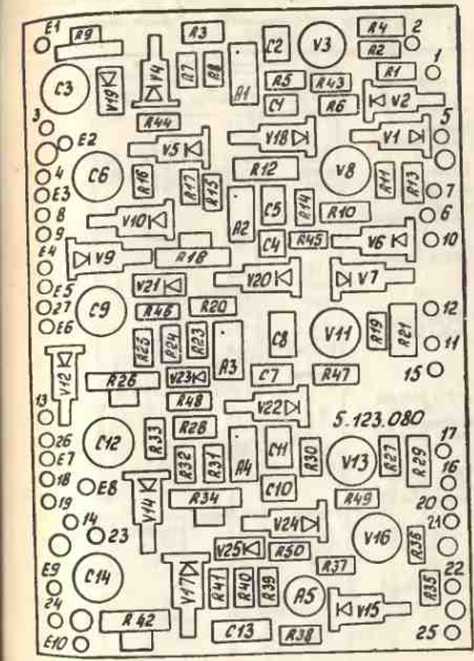 E1 R9 R3 C2 V3 R4 2
R2
C3 V19 V4 R7 R8 A1 R5 R43 R1 1
C1 R6 V2
3 R44 V18 V1 5
E2 V5
4 C6 R16 R17 R15 R12 V8 R11 R13
E3 7
8 V10 A2 C5 R14 R10 6
9 C4 R45 V6 10
E4 V9 R18
E5 V21 V20 V7
27 C9 R46 R20 12
E6 R25 R24 R23 A3 C8 V11 R19 R21 11
V12 R26 V23 C7 R47 15
R48 V22
13 5.123.080
26 C12 R33 R28 C11 17
E7 R32 R31 A4 R30 V13 R27 R29
18 E8 C10 16
19 V14 R34 R49 20
14 V24 21
23 V25 R50 V16 R36
E9 C14 V17 R41 R40 R39 R37 22
A5 R35
24 R42 V15
E10 C13 R38 25